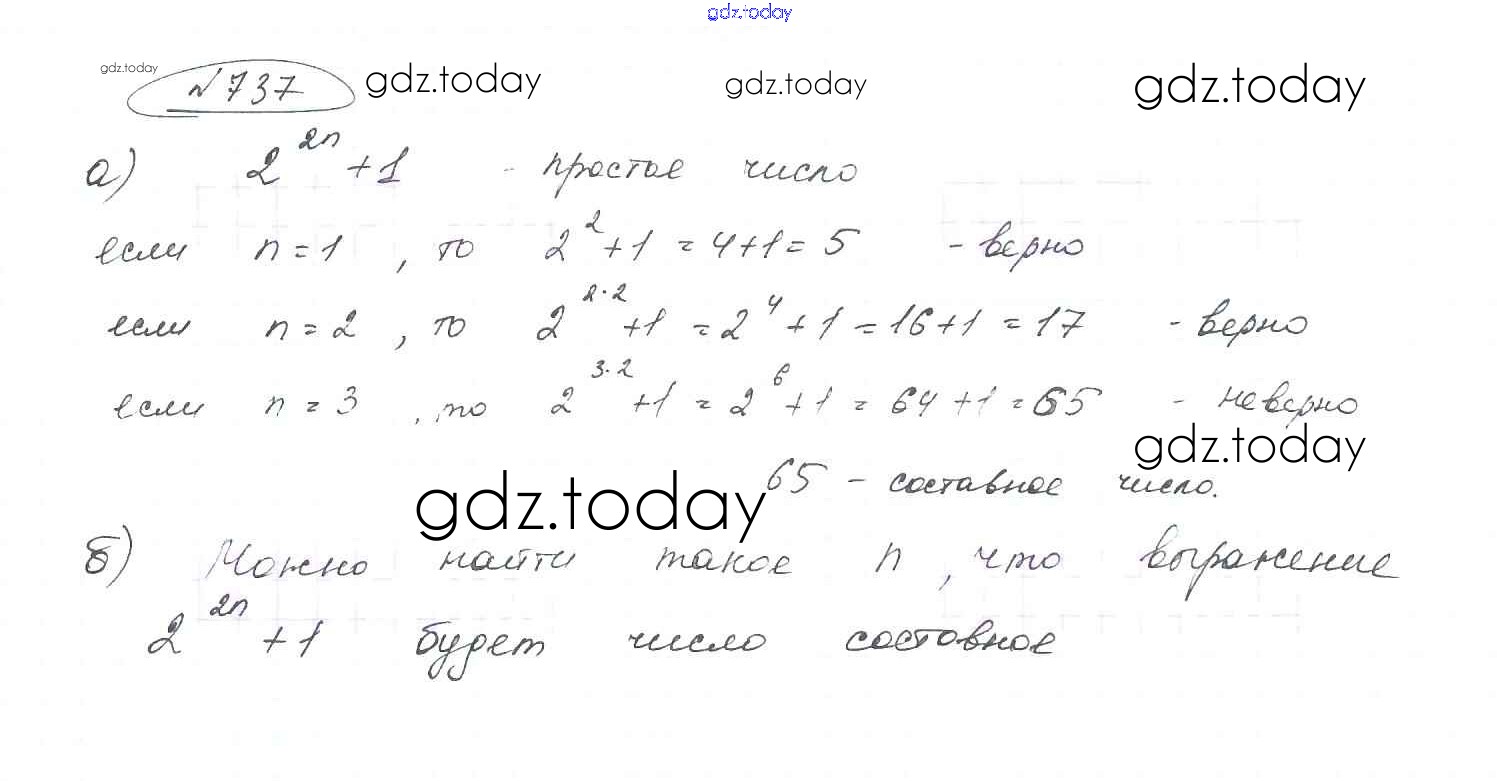 gdz.today
gdz.today №737 gdz.today gdz.today gdz.today
а) 2^{2n} + 1 - простое число
если n = 1, то 2^2 + 1 = 4 + 1 = 5 - верно
если n = 2, то 2^{2·2} + 1 = 2^4 + 1 = 16 + 1 = 17 - верно
если n = 3, то 2^{3·2} + 1 = 2^6 + 1 = 64 + 1 = 65 - неверно
gdz.today
65 - составное число.
gdz.today
б) Можно найти такое n, что выражение
2^{2n} + 1 будет число составное